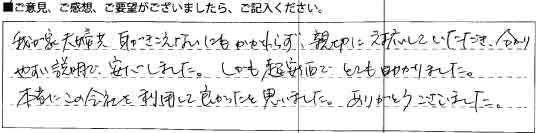 ■ご意見、ご感想、ご要望がございましたら、ご記入ください。
我が家夫婦共 耳がきこえないにもかかわらず、親切に対応していただき、分かり
やすい説明で、安心しました。しかも超安価で とても助かりました。
本当にこの会社を利用して良かったと思いました。ありがとうございました。